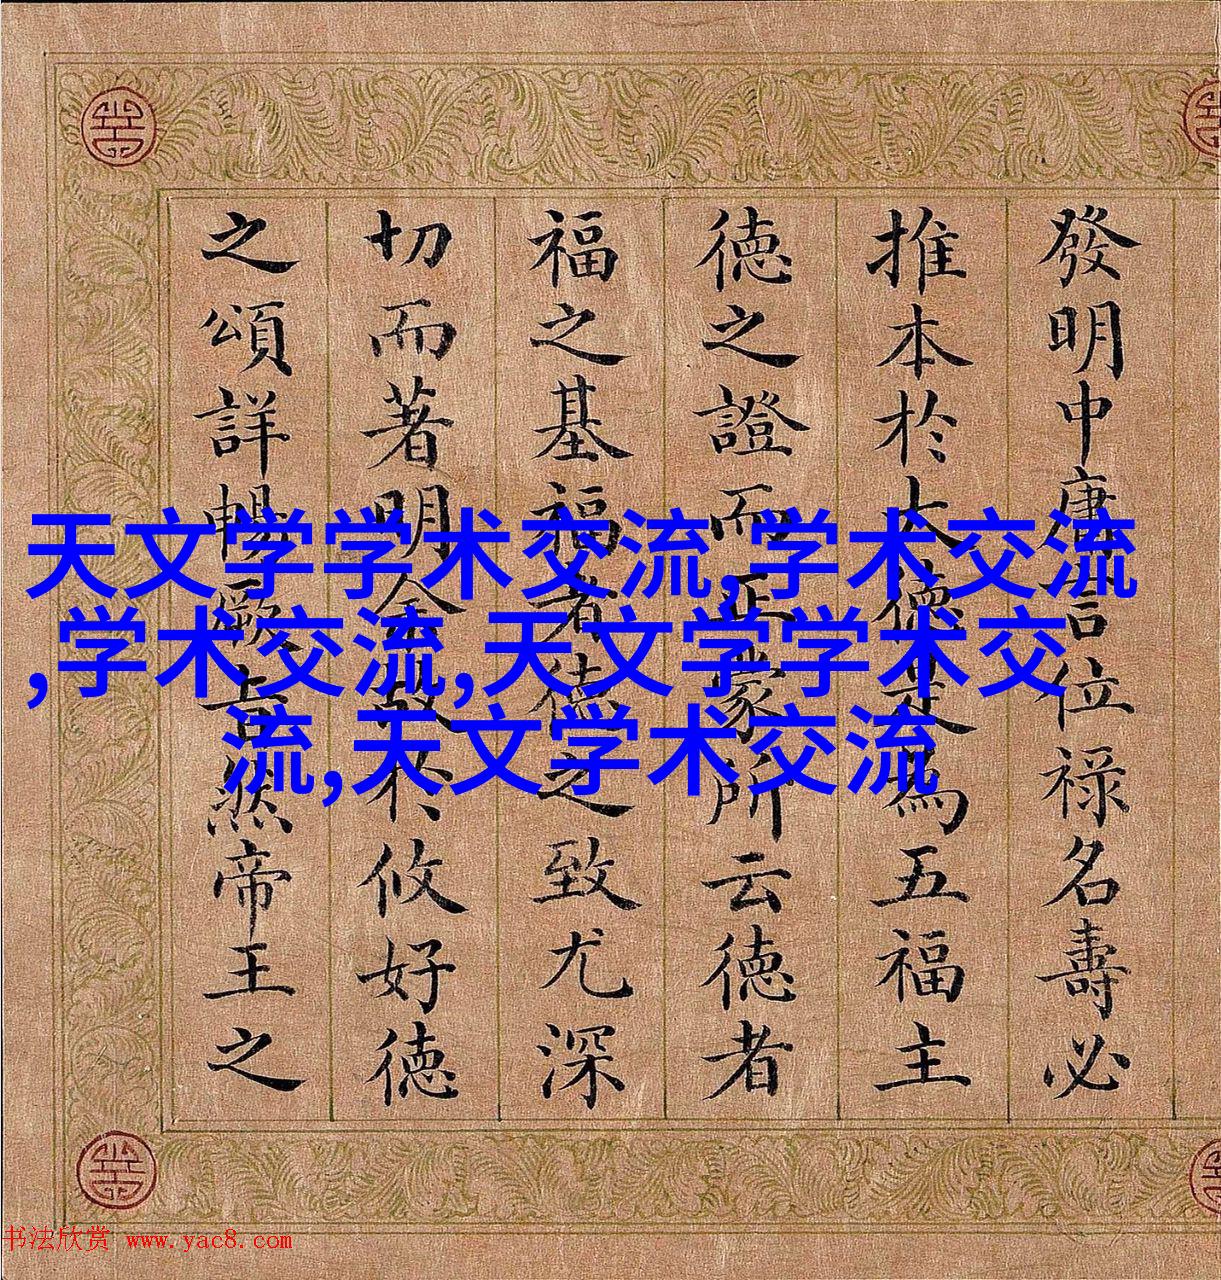 發明中庸言位祿名壽必
推本於大德是為五福主
德之證而正蒙所云德者
福之基福者德之致尤深
切而著明余故於攸好德
之頌詳暢厥旨然帝王之
天文学学术交流,学术交流
,学术交流,天文学学术交
流,天文学术交流
书法欣赏 www.yac8.com